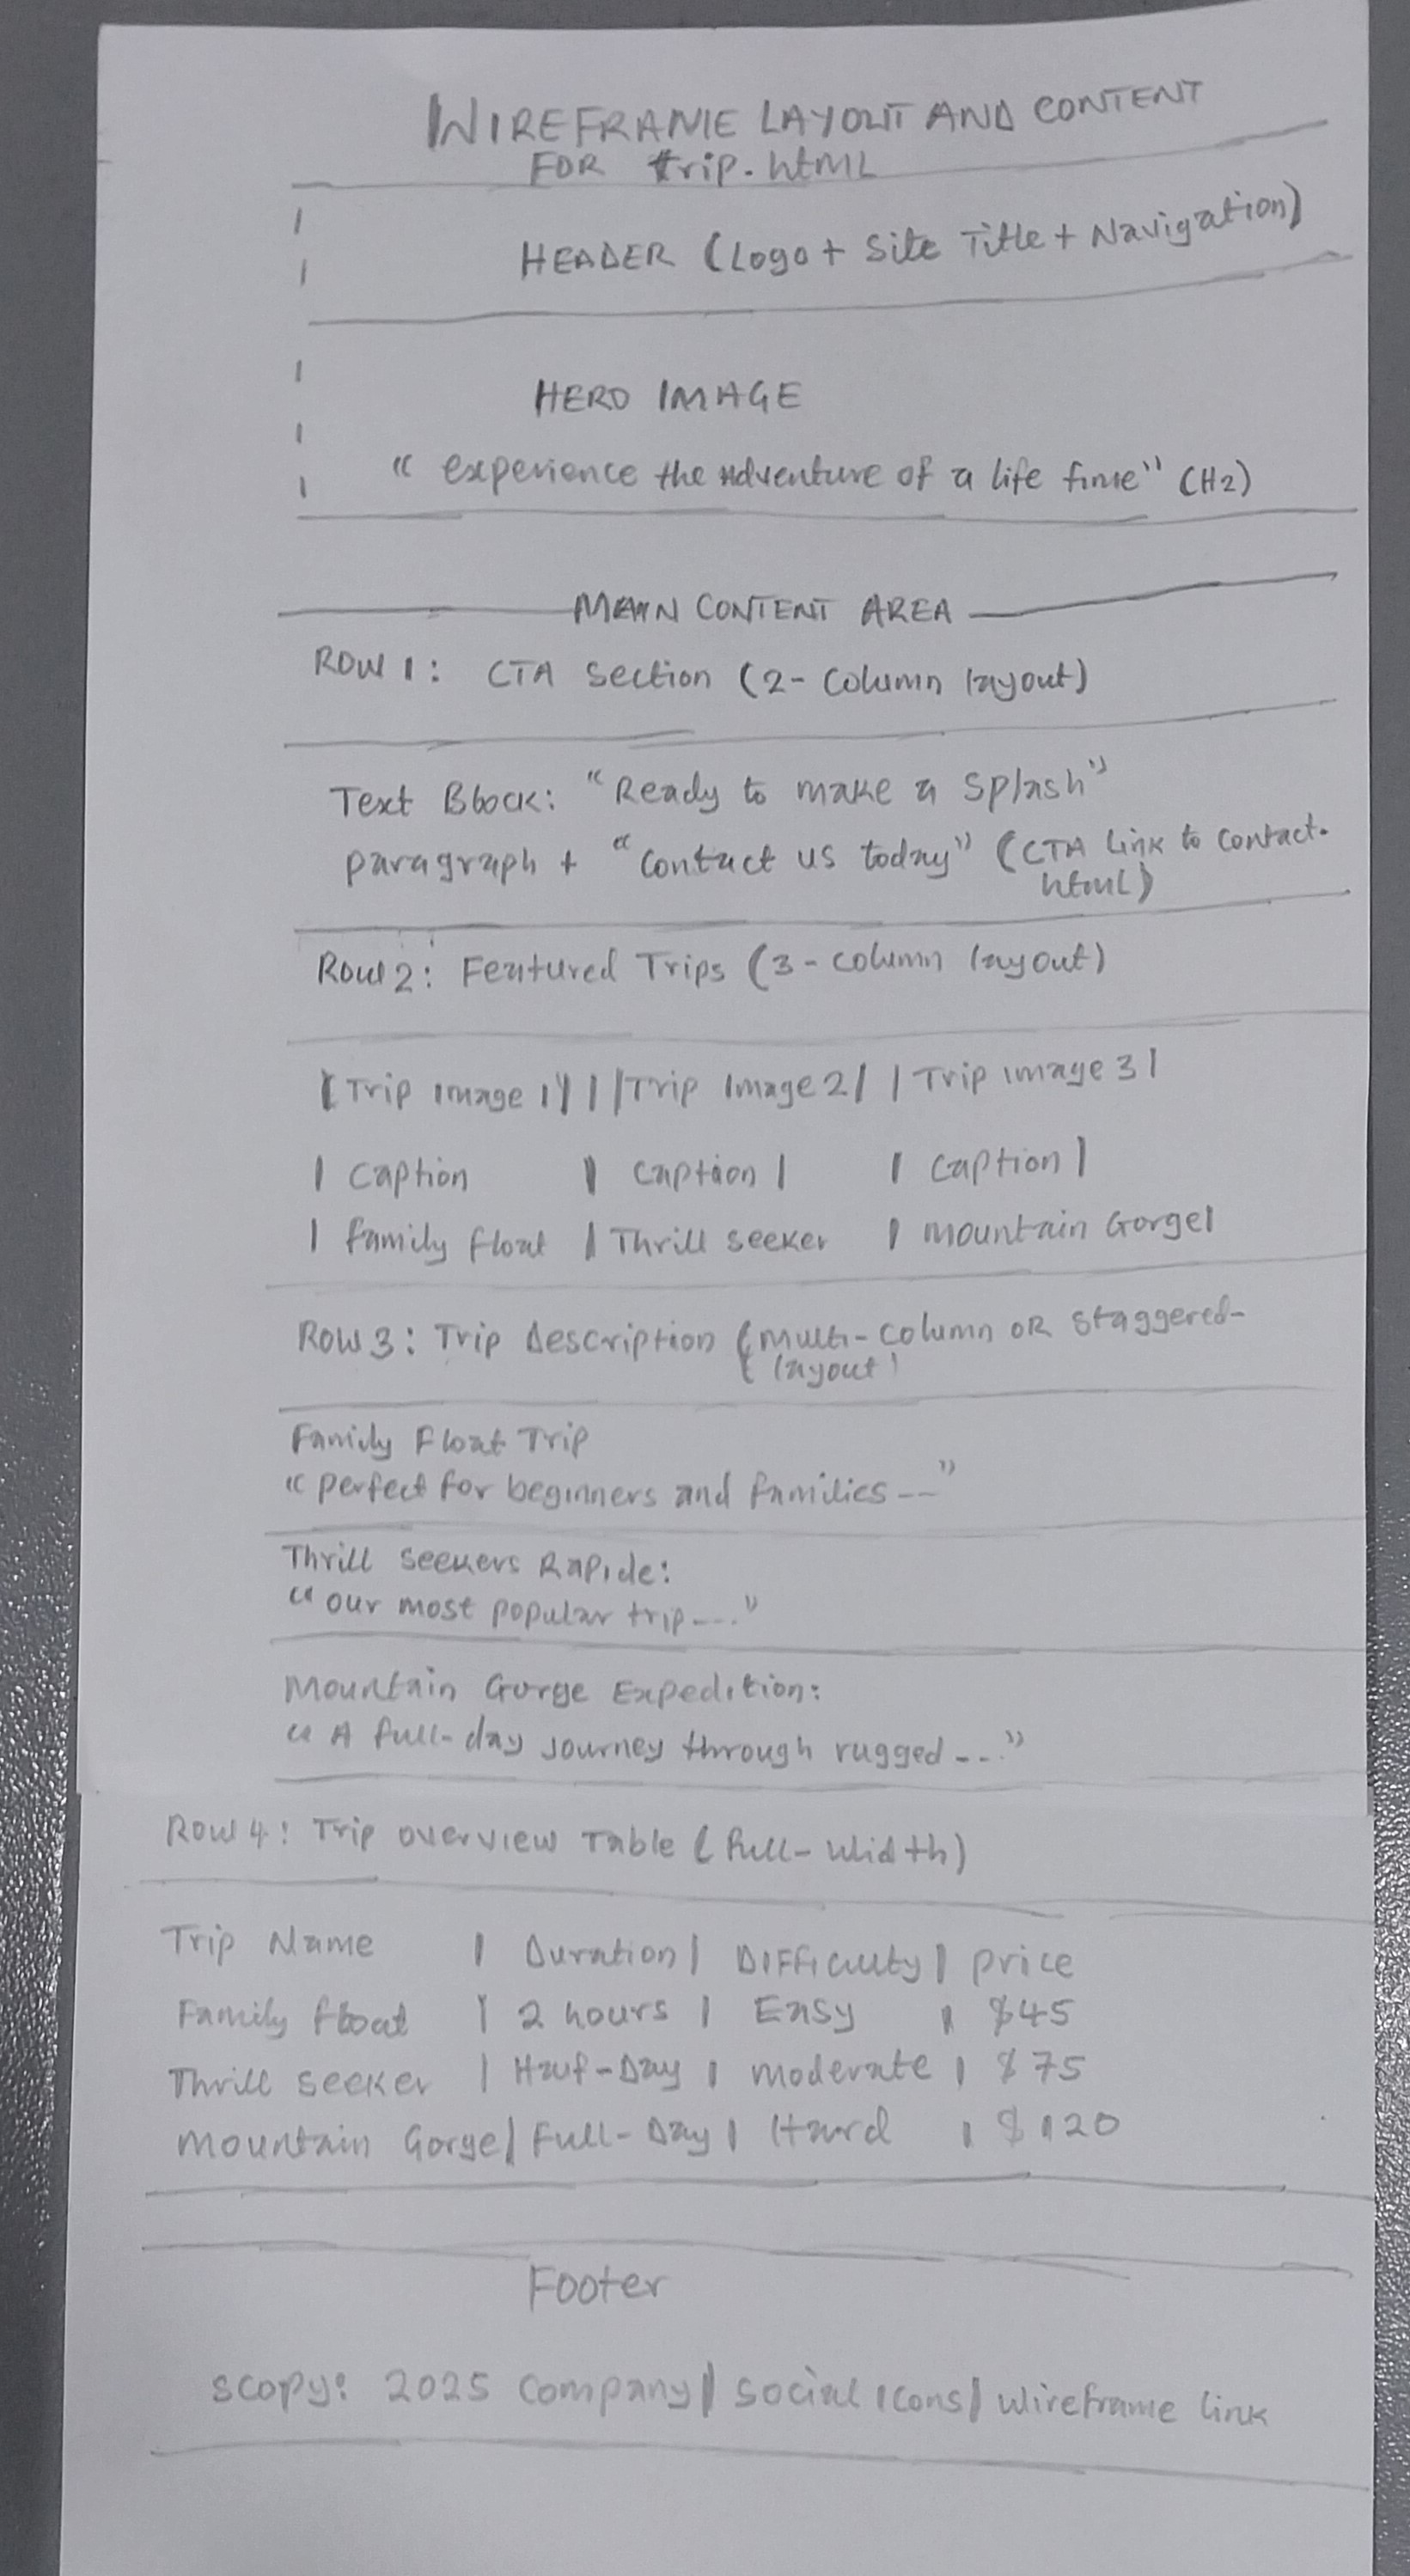 WIREFRAME LAYOUT AND CONTENT
FOR trip.html
HEADER (Logo + Site Title + Navigation)
HERO IMAGE
"experience the adventure of a life time" (H2)
MAIN CONTENT AREA
ROW 1: CTA Section (2-Column layout)
Text Block: "Ready to make a splash"
paragraph + "Contact us today" (CTA link to contact.
html)
Row 2: Featured Trips (3-column layout)
| Trip image 1 | | | Trip Image 2 | | Trip image 3 |
| Caption | Caption | | Caption |
| family float | Thrill seeker | mountain Gorge |
Row 3: Trip Description (Multi-Column OR Staggered-
layout)
Family Float Trip
"perfect for beginners and families --"
Thrill seekers Rapide:
"our most popular trip ---."
Mountain Gorge Expedition:
"A full-day journey through rugged --."
Row 4: Trip overview Table (full-width)
Trip Name | Duration | DIFFiculty | price
Family float | 2 hours | Easy | $45
Thrill seeker | Half-Day | moderate | $75
mountain Gorge | Full-Day | Hard | $120
Footer
scopy: 2025 Company | social icons | wireframe link